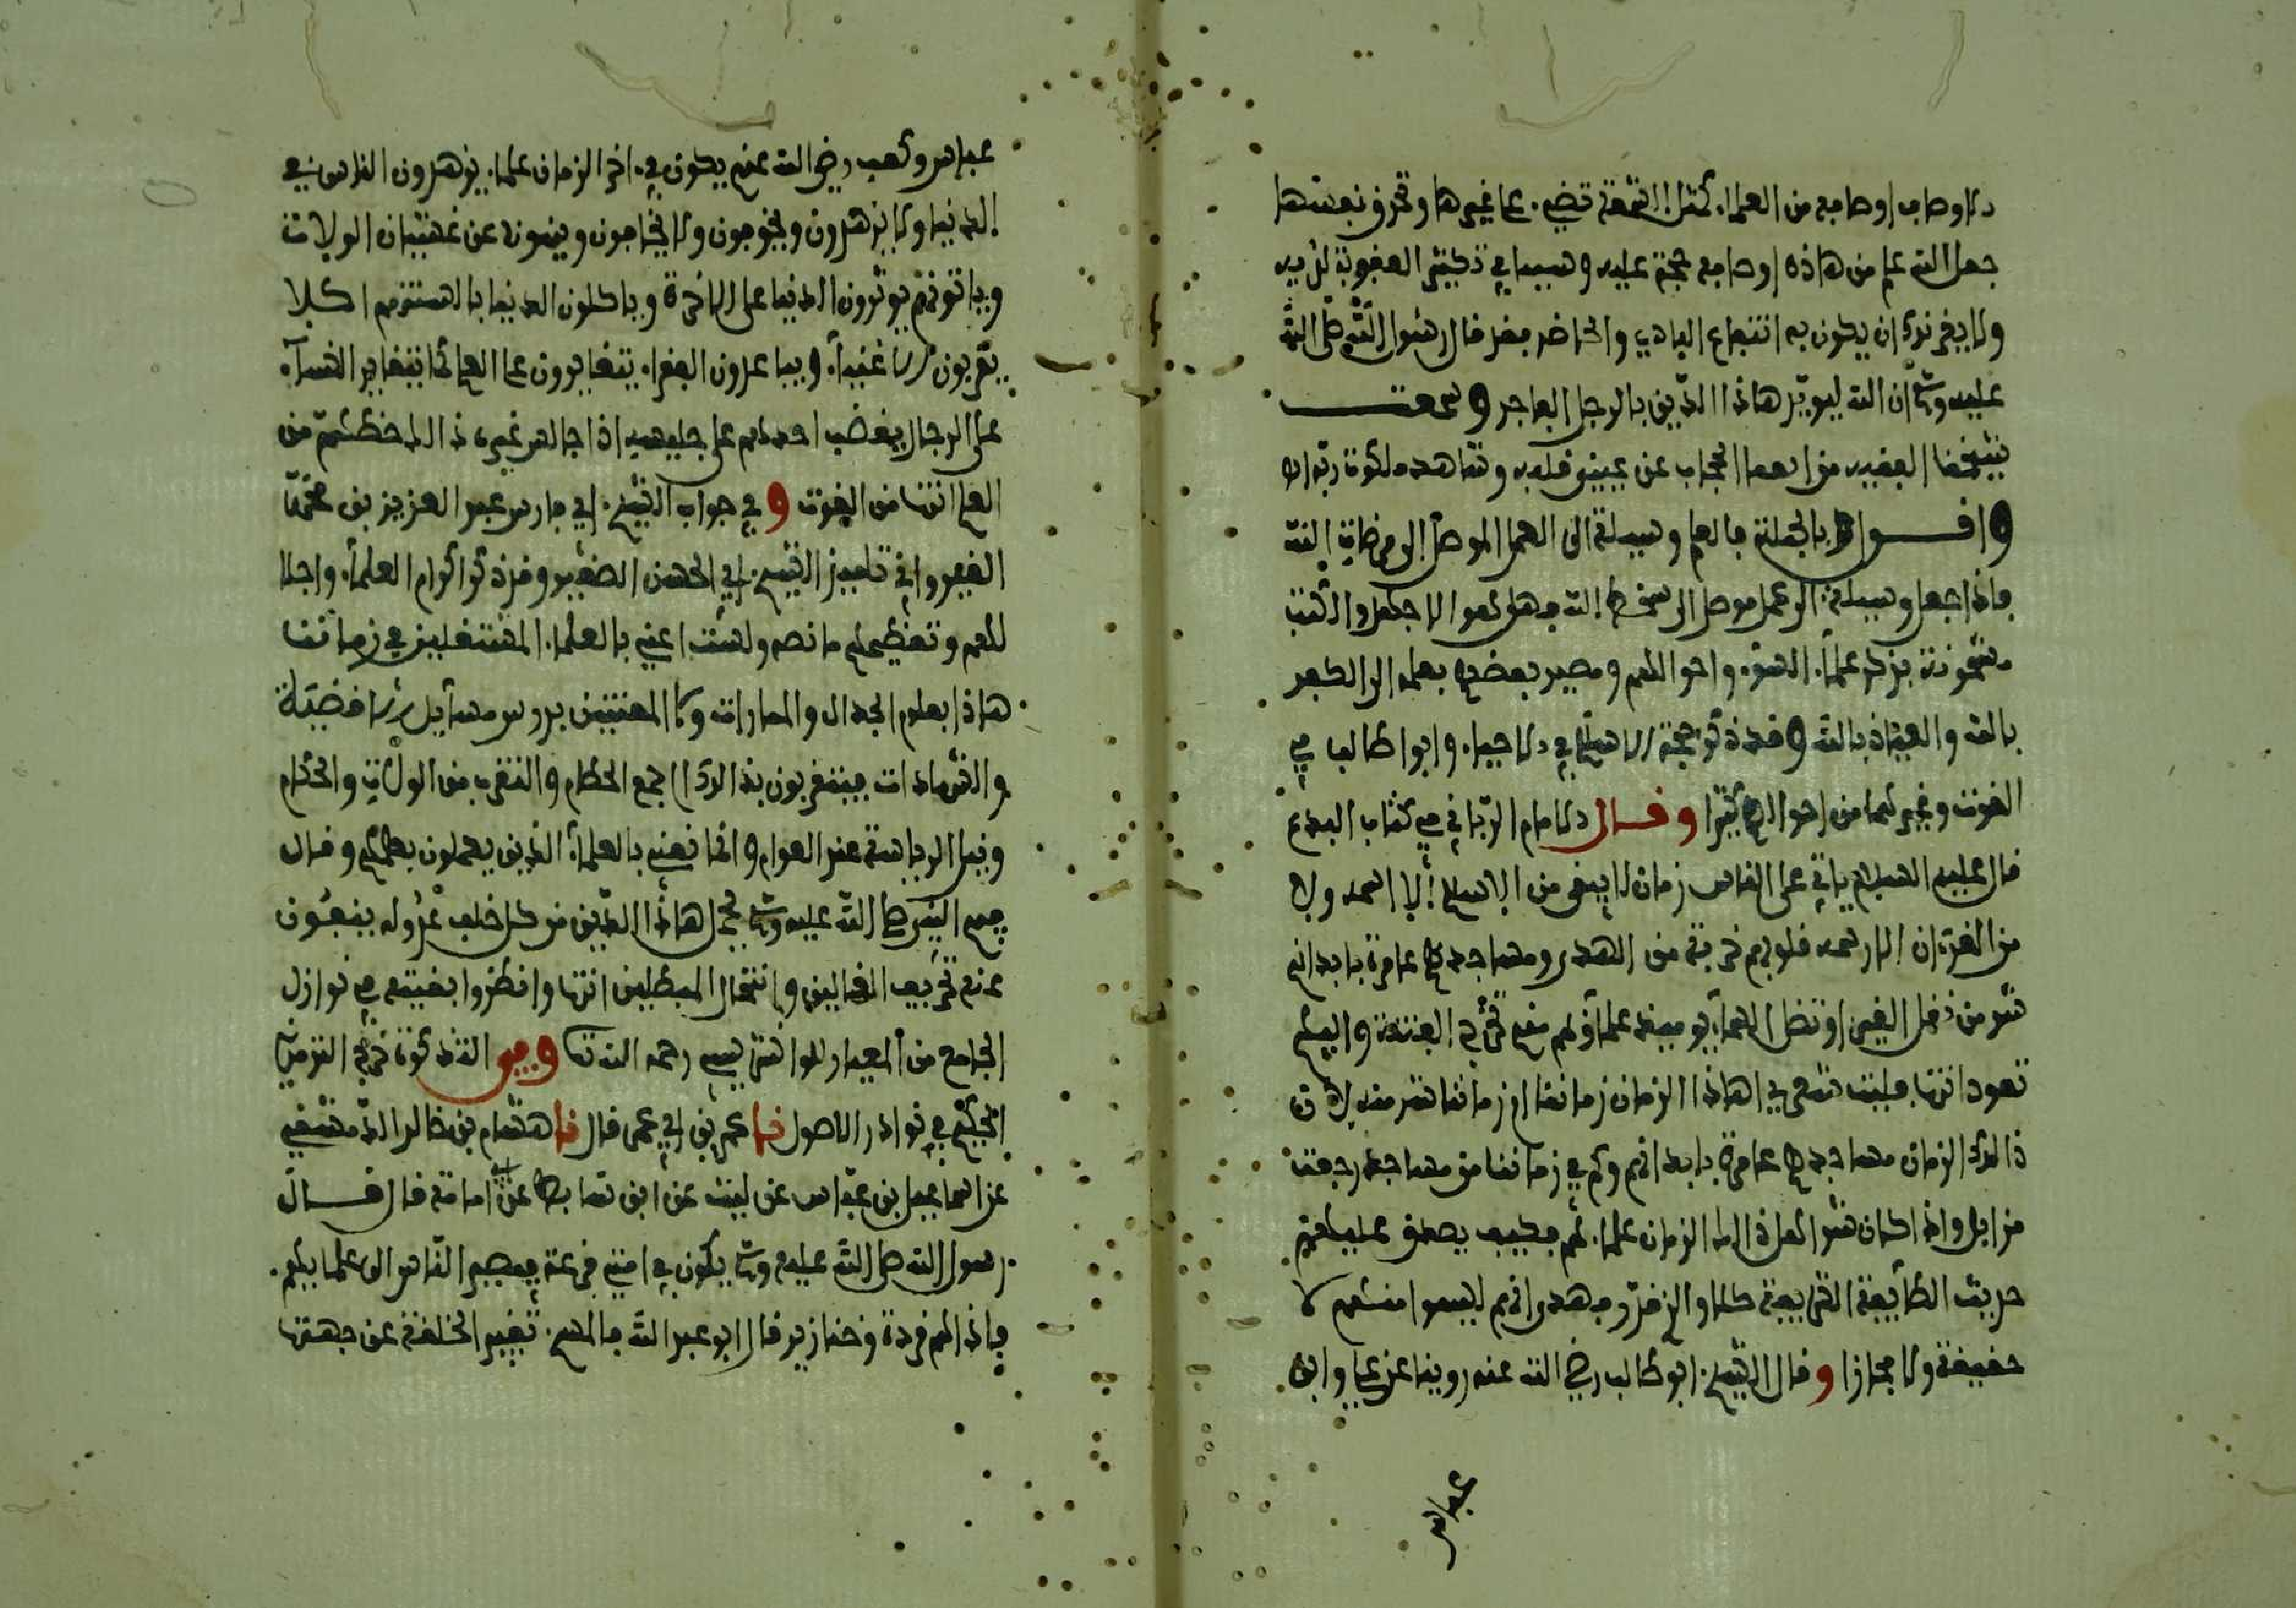 الاوصاب اوصابه من العلما. كمثل الشمعة تضيء. على غيرها وتحرق نفسها
جعل الله علم من هاذه اوصابه حجة عليه وسببا في تكثير العقوبة لديه
ولا يغرنك ان يكون به انتفاع البادي والحاضر فقد قال رسول الله صلى الله
عليه وسلم ان الله ليويد هاذا الدين بالرجل الفاجر وسمعت
شيخنا الفقيه من ... الحجاب عن عين قلبه وشاهد ملكوت ربه انه
وافـول وبالجملة فالعلم وسيلة الى العمل الموصل الى مرضات الله
فاذا جعل وسيلة الى عمل موصل الى سخط الله فهلى هو الا جهل والكتب
مشحونة بذكر علما. السوء واحوالهم ومصير بعضهم بعلمه الى الكفر
بالله والعياذ بالله وقد ذكر حجة الاسلام في الاحيا. وابو طالب في
القوت وغيرهما من احوالهم كثيرا وفـال الامام الربانى في كتاب البدع
قال عليه السلام ياتي على الناس زمان لا يبقى من الاسلام الا اسمه ولا
من القرءان الا رسمه قلوبهم خربة من الهدى ومساجدهم عامرة بابدانهم
شر من تظل السماء يوميذ علماؤهم منهم تخرج الفتنة واليهم
تعود انتهى فليت شعري اهاذا الزمان زماننا او زماننا شر منه لان
ذالك الزمان مساجدهم عامرة بابدانهم وكم في زماننا من مساجد رجعت
مزابل واذا كان شر اهل ذالك الزمان علما.هم فكيف يصدق عليهم
حديث الطايفة الشريفة كلا والزقر وقد وانهم ليسوا منهم لا
حقيقة ولا مجازا وقال الشيخ. ابو طالب رضي الله عنه روينا عن علي وابن
عباس
عباس وكعب رضي الله عنهم يكون في.اخر الزمان علما. يزهدون الناس في
الدنيا ولا يزهدون ويخوفون ولا يخافون وينهون عن غشيان الولات
وياتونهم يوثرون الدنيا على الاخرة وياكلون الدنيا بالسنتهم اكلا
يقربون الاغنيا. ويباعدون الفقرا. يتغايرون على العلم كما تتغاير النسا.
على الرجال يغضب احدهم على جليسه اذا جالس غيره ذالك حظهم من
العلم انتها من القوت وفي جواب الشيخ. ابي فارس عبد العزيز بن محمد
القيرواني تلميذ الشيخ. ابي الحسن الصغير وقد ذكر اكرام العلما. واجلا
لهم وتعظيمهم ما نصه ولست اعني بالعلما. المشتغلين في زماننا
هاذا بعلوم الجدال والممارات ولا المعتنين بدروس مسايل الاقضية
والشهادات فيتقربون بذالك الى جمع الحطام والتقرب من الولات والحكام
ونيل الرياسة عند العوام وانما نعني بالعلما. الذين يعملون بعلمهم وقال
فيهم النبي صلى الله عليه وسلم يحمل هاذا الدين من كل خلف عدوله ينفون
عنه تحريف الغالين وانتحال المبطلين انتها وانظروا بقيته في نوازل
الجامع من المعيار للوانشريسي رحمه الله تعا وفي التذكرة خرج الترمذي
الحكيم في نوادر الاصول نـا عمر بن ابي عمر قال نـا هشام بن خالد الدمشقي
عن اسماعيل بن عياش عن ليث عن ابن سابط عن ابي امامة قال قـال
رسول الله صلى الله عليه وسلم يكون في امتي فزعة فيصير الناس الى علمايهم.
فاذا هم قردة وخنازير قال ابو عبد الله فالمسخ. تغيير الخلقة عن جهتها